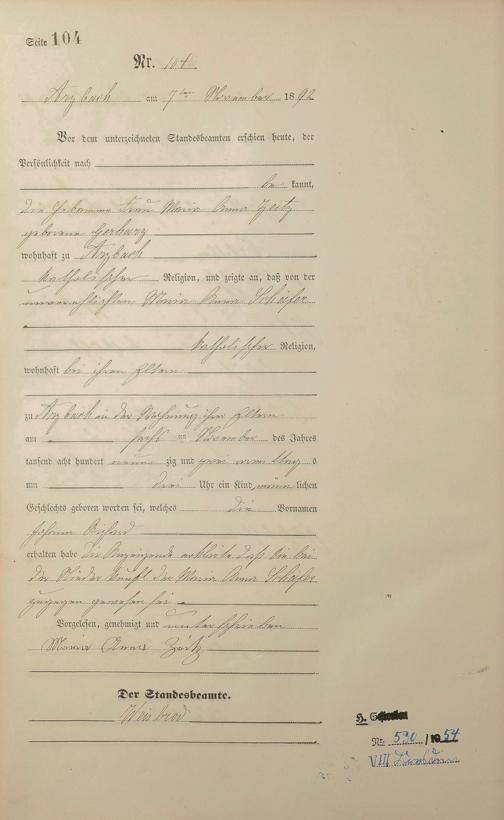 Seite 104
Nr. 104.
Arzbach am 7ten November 1892
Vor dem unterzeichneten Standesbeamten erschien heute, der
Persönlichkeit nach
be kannt,
die Hebamme Frau Maria Anna Zeitz
geborene Gerharz
wohnhaft zu Arzbach
katholischer Religion, und zeigte an, daß von der
unverehelichten Maria Anna Schäfer
katholischer Religion,
wohnhaft bei ihren Eltern
zu Arzbach in der Wohnung ihrer Eltern
am sechsten November des Jahres
tausend acht hundert neun zig und zwei Vormittags
um drei Uhr ein Kind männ lichen
Geschlechts geboren worden sei, welches die Vornamen
Johann
erhalten habe die Anzeigende erklärte daß sie bei
der Niederkunft der Maria Anna Schäfer
zugegen gewesen sei
Vorgelesen, genehmigt und unterschrieben
Maria Anna Zeitz
Der Standesbeamte.
Weisbrod
Nr. 530/1954
VIII